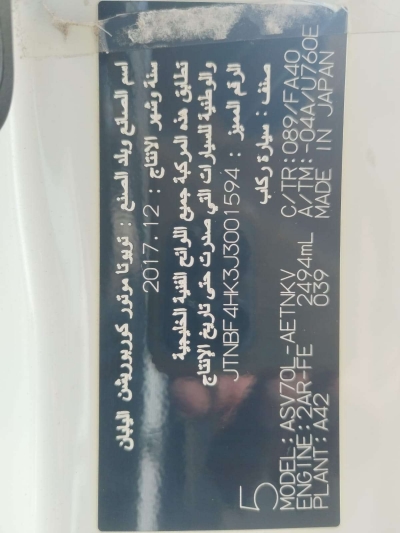 اسم الصانع وبلد الصنع : تويوتا موتور كوربوريشن اليابان
سنة وشهر الانتاج : 2017.12
تطابق هذه المركبة جميع اللوائح الفنية الخليجية
والوطنية للسيارات التي صدرت حتى تاريخ الإنتاج
الرقم المميز : JTNBF4HK3J3001594
صنف : سيارة ركاب
5
MODEL:ASV70L-AETNKV C/TR:089/FA40
ENGINE:2AR-FE 2494mL A/TM:-04A/U760E
PLANT:A42 039 MADE IN JAPAN